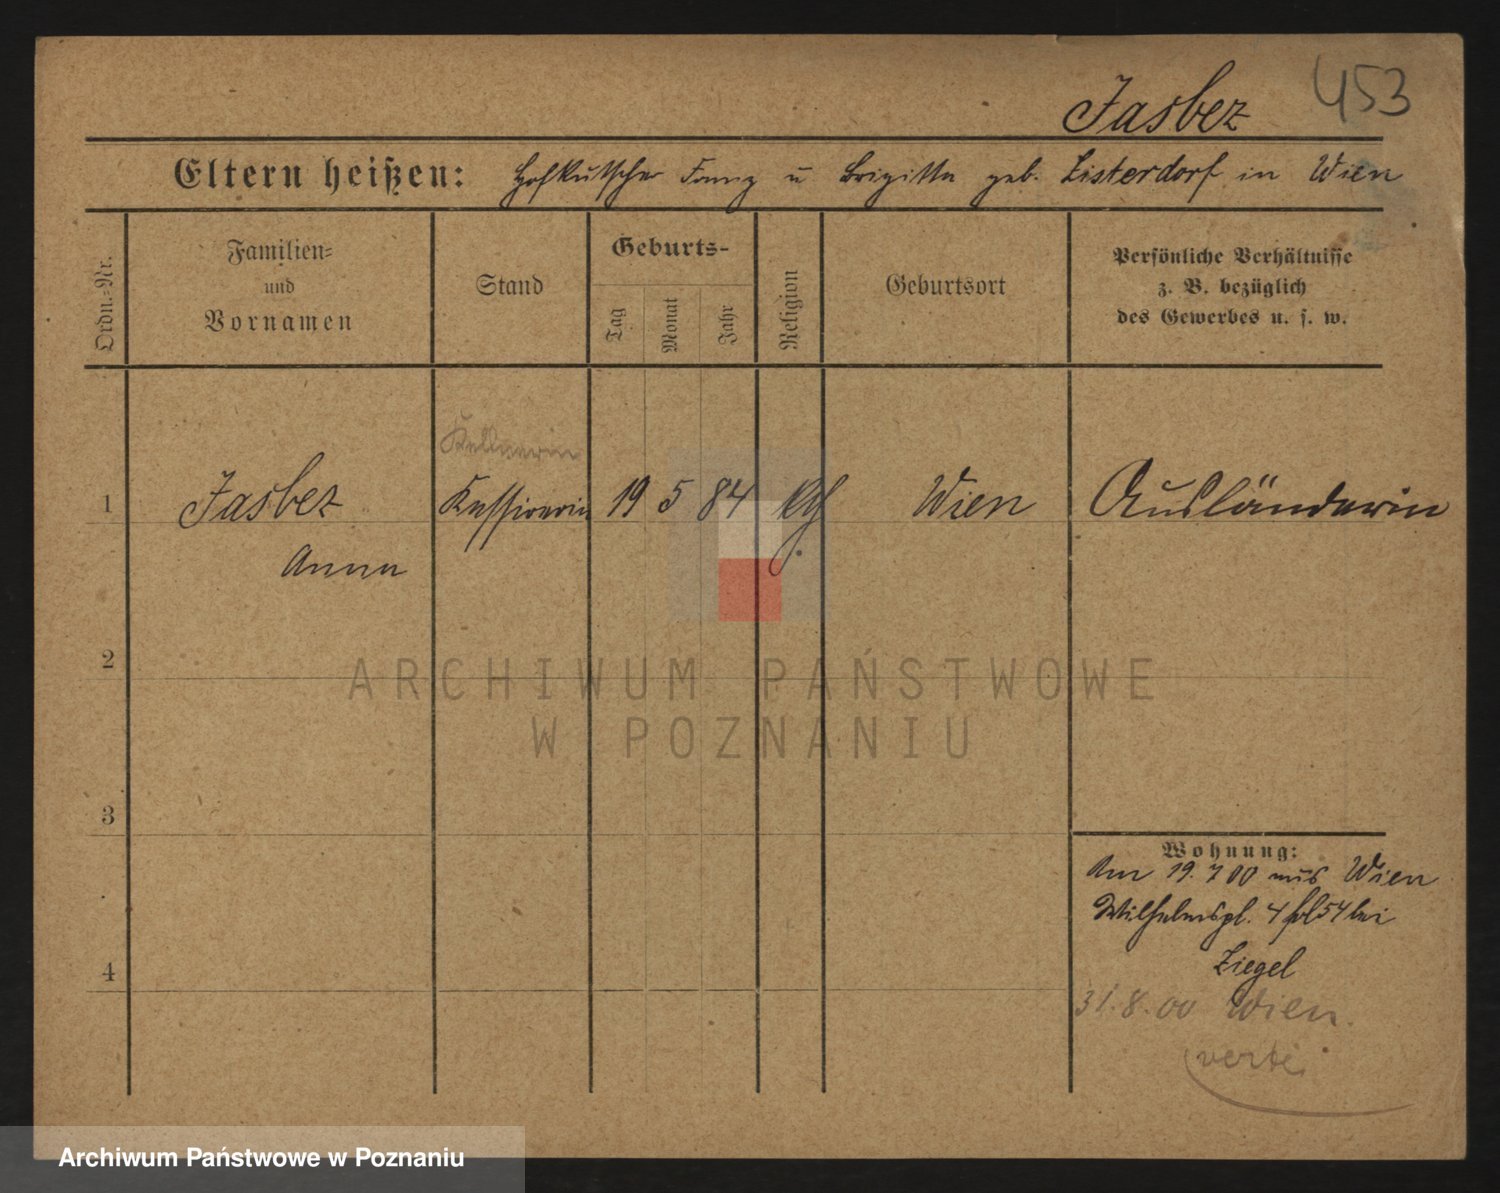 453
Jasbez
Eltern heißen: Hofkutscher Franz u Brigitta geb. Listerdorf in Wien
Ordn.-Nr.
Familien-
und
Vornamen
Stand
Geburts-
Tag
Monat
Jahr
Religion
Geburtsort
Persönliche Verhältnisse
z. B. bezüglich
des Gewerbes u. s. w.
Kellnerin
1 Jasbez Kassirerin 19 5 84 kth Wien Ausländerin
Anna
2
ARCHIWUM PAŃSTWOWE
W POZNANIU
3
Wohnung:
Am 19. 7 00 aus Wien
Wilhelmspl. 4 bei
Ziegel
4
31. 8. 00 Wien.
Archiwum Państwowe w Poznaniu